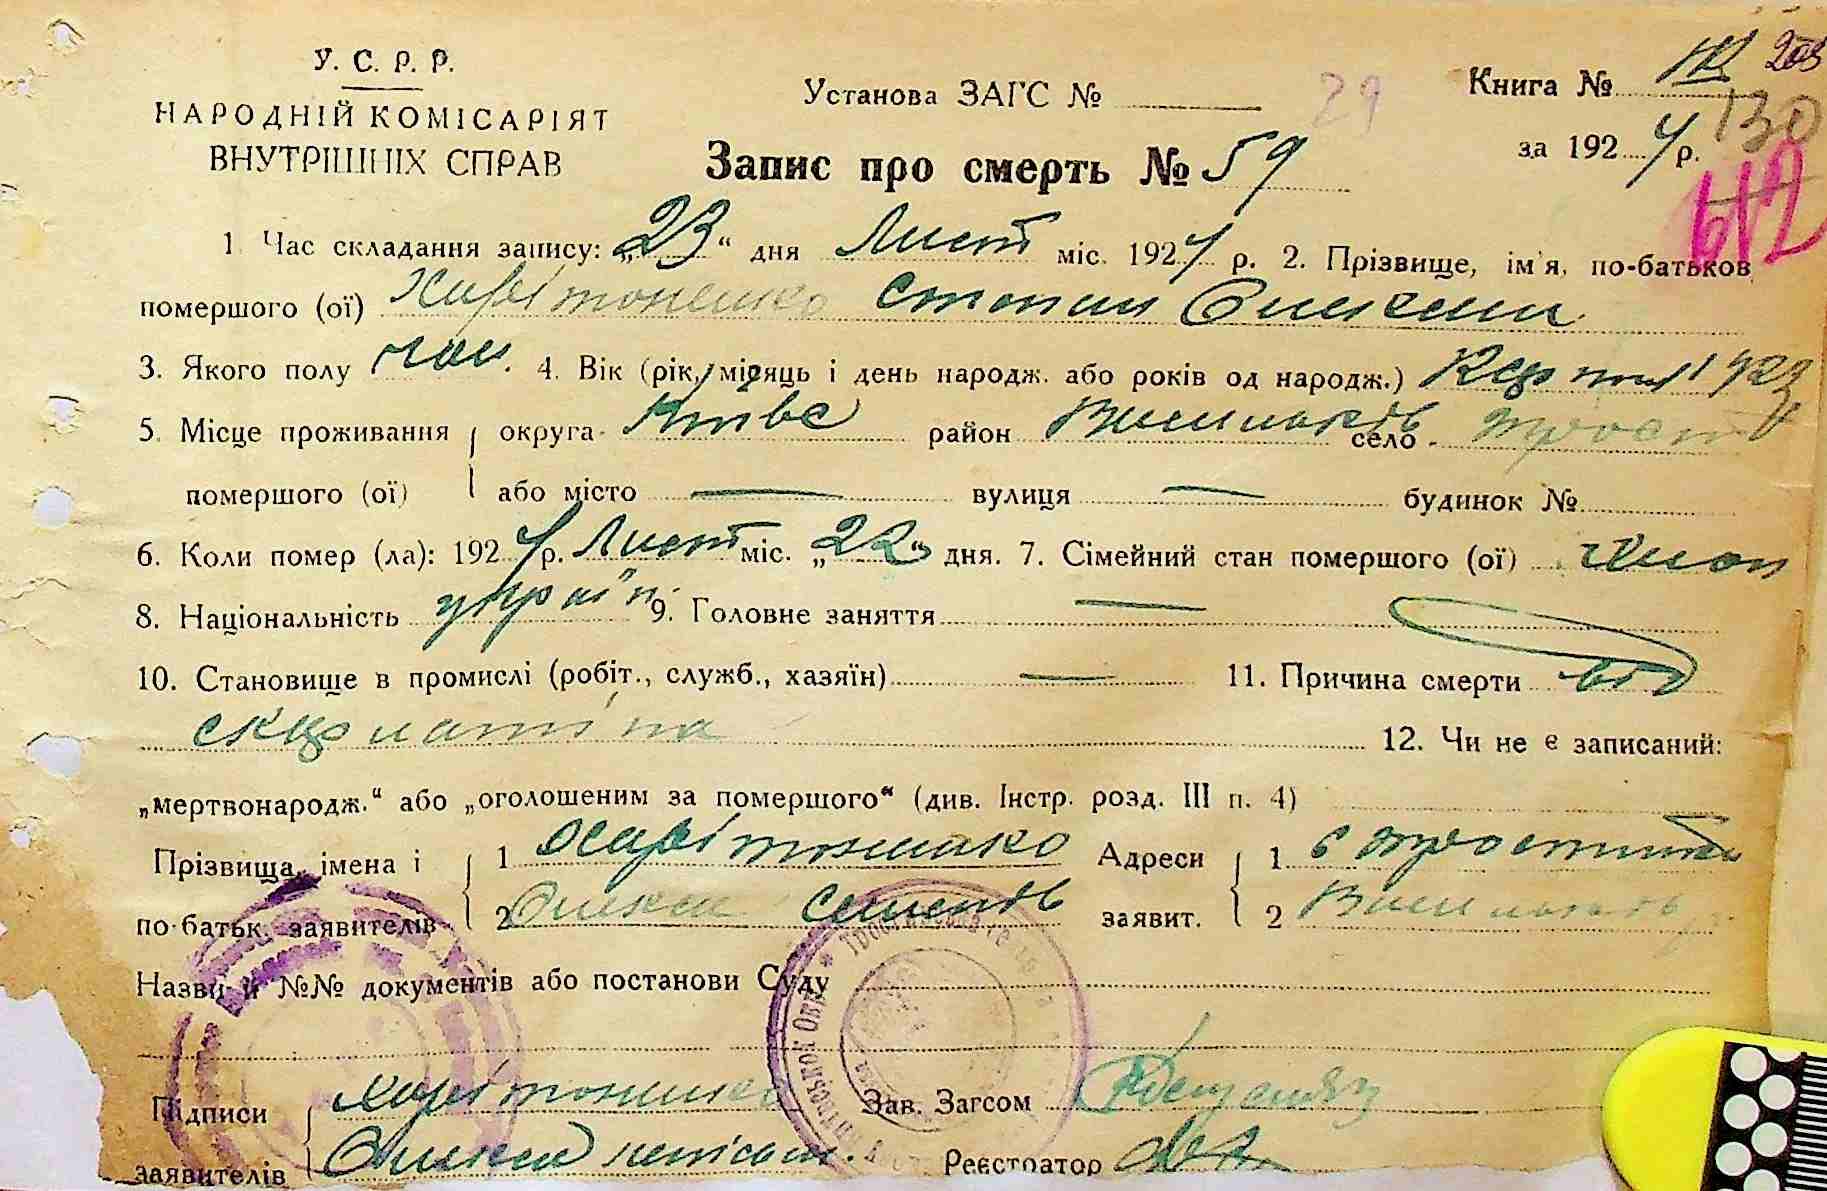 У. С. Р. Р.
НАРОДНІЙ КОМІСАРІЯТ
ВНУТРІШНІХ СПРАВ
Установа ЗАГС № 29
Книга № III 203
за 1924 р. 130
612
Запис про смерть № 59
1. Час складання запису: „23“ дня Лист міс. 1924 р. 2. Прізвище, ім'я, по-батьков
помершого (ої) Харітоненко Степан Олексеи
3. Якого полу чол. 4. Вік (рік, місяць і день народж. або років од народж.) 1923
5. Місце проживання округа Київс район Васильків село Трост
помершого (ої) або місто — вулиця — будинок №
6. Коли помер (ла): 1924 р. Лист міс. „22“ дня. 7. Сімейний стан помершого (ої)
8. Національність україн. 9. Головне заняття —
10. Становище в промислі (робіт., служб., хазяїн) — 11. Причина смерти від
скарлатіна 12. Чи не є записаний:
„мертвонародж.“ або „оголошеним за помершого“ (див. Інстр. розд. III п. 4)
Прізвища, імена і 1 Харітоненко Адреси 1 с Тростинка
по-батьк. заявителів 2 Олекса Семенов заявит. 2 Васильків
Назви й №№ документів або постанови Суду
Підписи Харітоненко Зав. Загсом
заявителів Олекса непісьм. Реєстратор